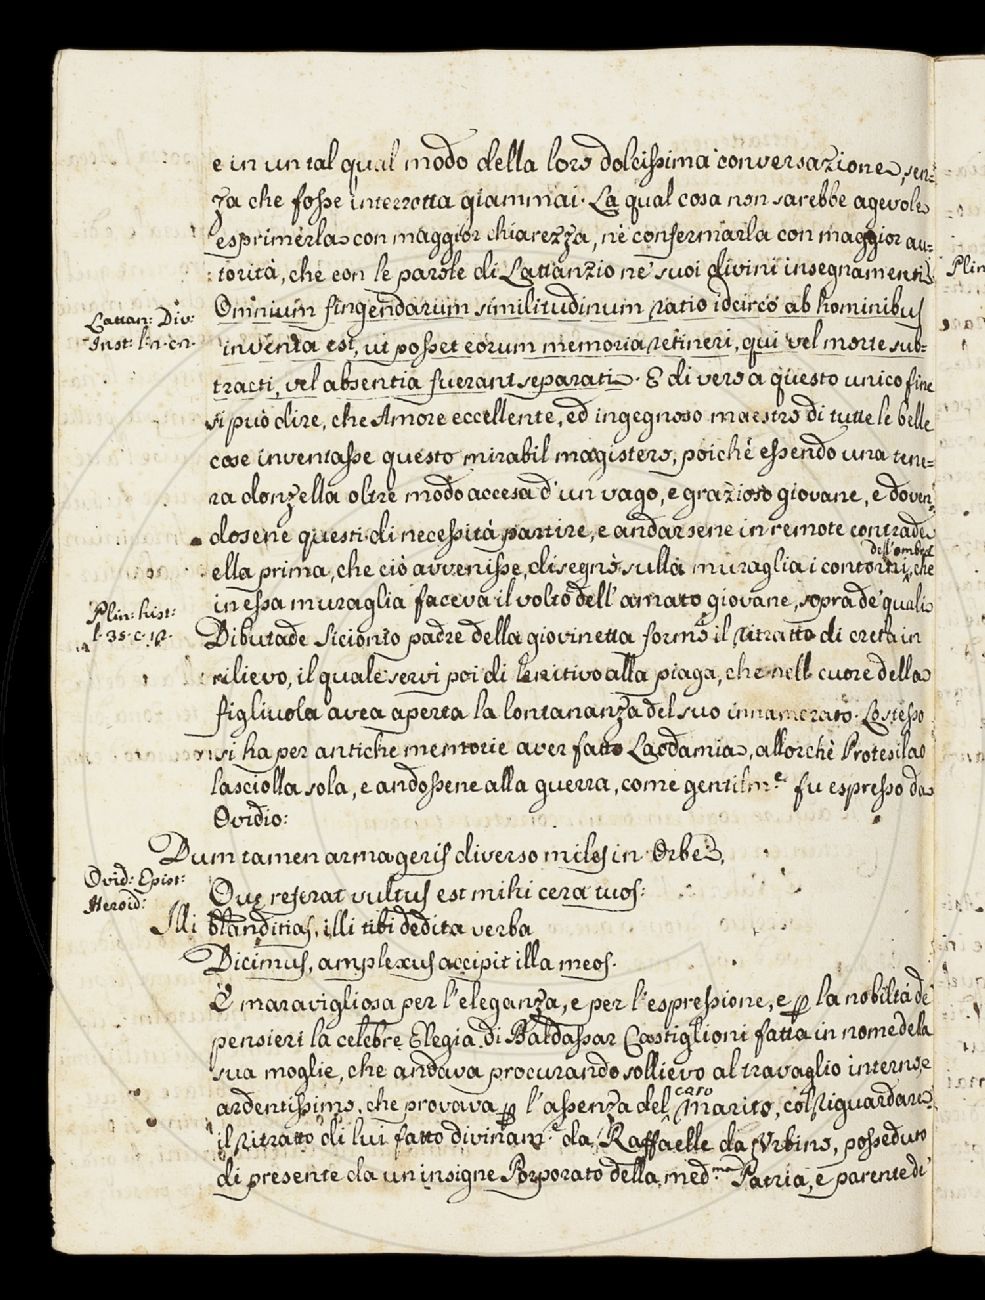 e in un tal qual modo della loro dolcissima conversazione, sen=
za che fosse interrotta giammai. La qual cosa non sarebbe agevole
esprimerla con maggior chiarezza, nè confermarla con maggior au=
torità, che con le parole di Lattanzio ne' suoi divini insegnamenti
Omnium fingendarum similitudinum ratio idcirco ab hominibus
Lattan: Div:
Inst: l. n. cn.
inventa est, ut posset eorum memoria retineri, qui vel morte sub=
tracti, vel absentia fuerant separati. E di vero a questo unico fine
si può dire, che Amore eccellente, ed ingegnoso maestro di tutte le belle
cose inventasse questo mirabil magistero, poichè essendo una tene=
ra donzella oltre modo accesa d'un vago, e grazioso giovane, e doven=
dosene questi di necessità partire, e andarsene in remote contrade
dell'ombra
ella prima, che ciò avvenisse, disegnò sulla muraglia i contorni, che
in essa muraglia faceva il volto dell'amato giovane, sopra de' quali
Plin: hist:
l. 35. c. 12.
Dibutade Sicionio padre della giovinetta formò il ritratto di creta in
rilievo, il quale servì poi di lenitivo alla piaga, che nell cuore della
figliuola avea aperta la lontananza del suo innamorato. Lo stesso
si ha per antiche memorie aver fatto Laodamia, allorchè Protesilao
lasciolla sola, e andossene alla guerra, come gentilm.e fu espresso da
Ovidio:
Dum tamen arma geris diverso miles in Orbe,
Ovid: Epist:
Heroid:
Quę referat vultus est mihi cera tuos:
Illi blanditias, illi tibi dedita verba
Dicimus, amplexus accipit illa meos.
È maravigliosa per l'eleganza, e per l'espressione, e p la nobiltà de'
pensieri la celebre Elegia di Baldassar Castiglioni fatta in nome dela
sua moglie, che andava procurando sollievo al travaglio interno, e
caro
ardentissimo, che provava p l'assenza del marito, col riguardare
il ritratto di lui fatto divinam.e da Raffaelle da Urbino, posseduto
di presente da un insigne Porporato della med.ma Patria, e parente di
Plin